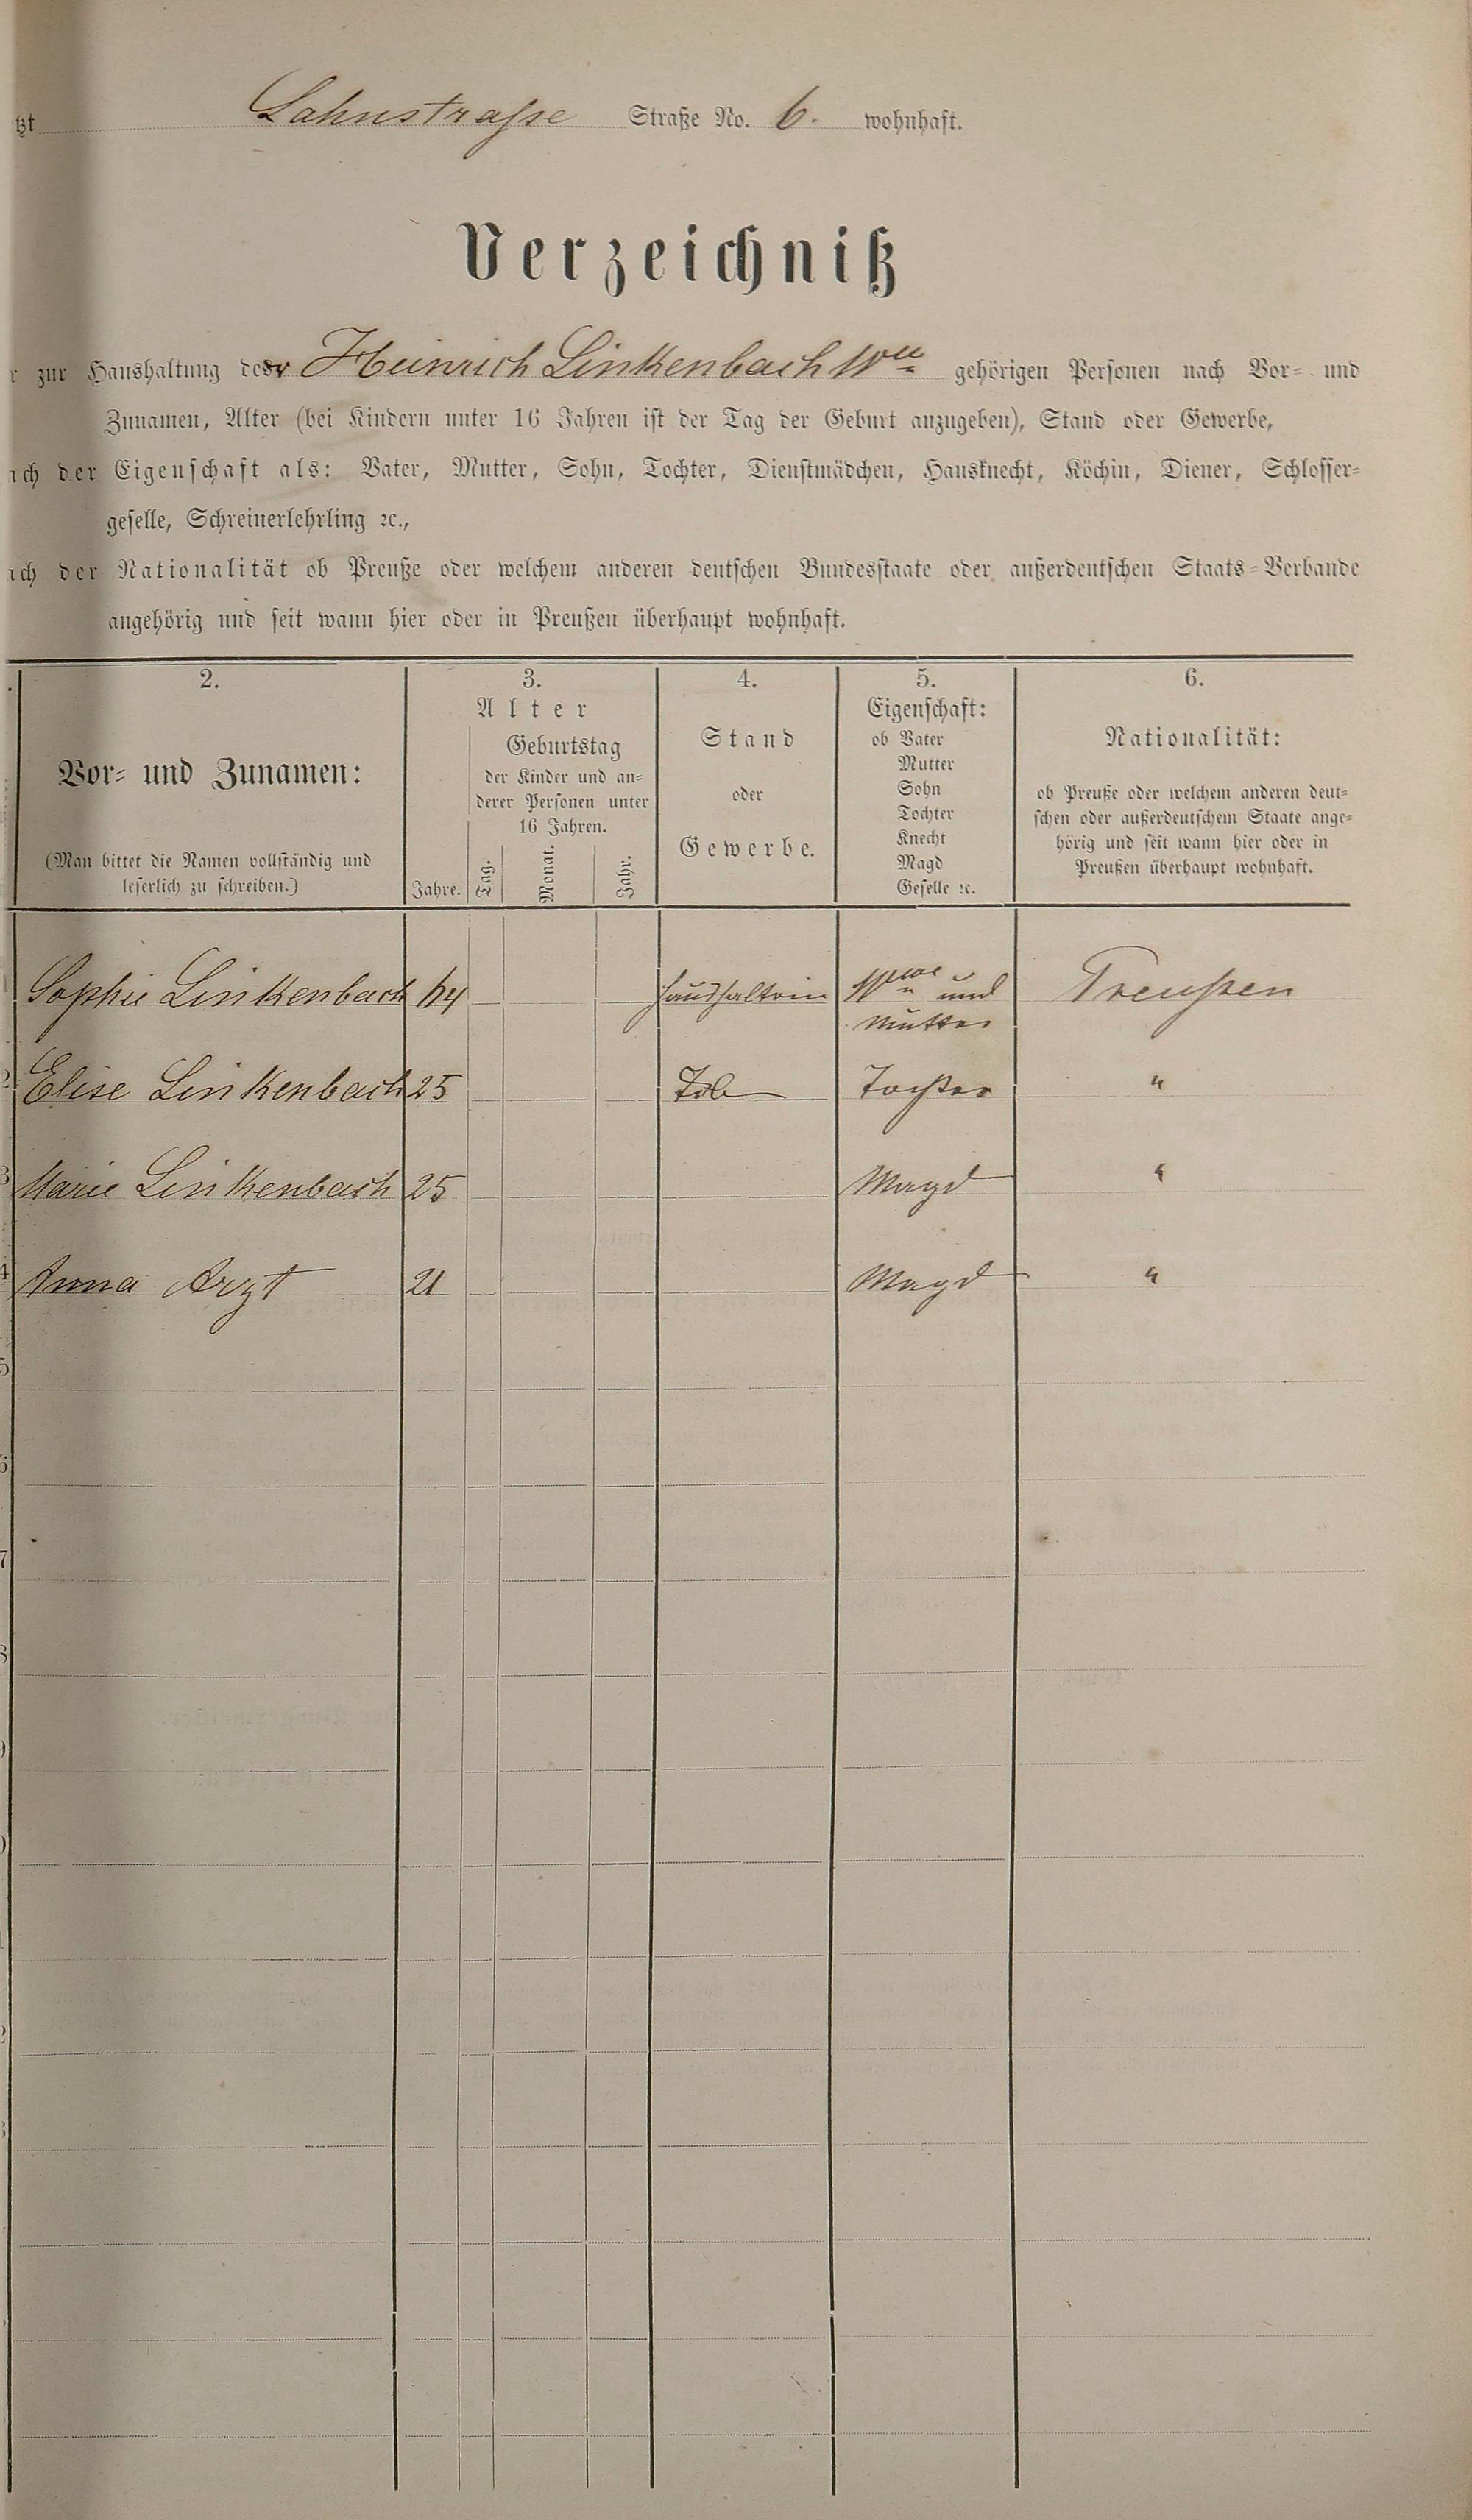 tzt Lahnstraße Straße No. 6. wohnhaft.
Verzeichniß
r zur Haushaltung der Heinrich Linkenbach Wwe gehörigen Personen nach Vor- und
Zunamen, Alter (bei Kindern unter 16 Jahren ist der Tag der Geburt anzugeben), Stand oder Gewerbe,
ach der Eigenschaft als: Vater, Mutter, Sohn, Tochter, Dienstmädchen, Hausknecht, Köchin, Diener, Schlosser-
geselle, Schreinerlehrling ꝛc.,
ach der Nationalität ob Preuße oder welchem anderen deutschen Bundesstaate oder außerdeutschen Staats-Verbande
angehörig und seit wann hier oder in Preußen überhaupt wohnhaft.
2.
Vor- und Zunamen:
(Man bittet die Namen vollständig und
leserlich zu schreiben.)
3.
Alter
Geburtstag
der Kinder und an-
derer Personen unter
16 Jahren.
Jahre. Tag. Monat. Jahr.
4.
Stand
oder
Gewerbe.
5.
Eigenschaft:
ob Vater
Mutter
Sohn
Tochter
Knecht
Magd
Geselle ꝛc.
6.
Nationalität:
ob Preuße oder welchem anderen deut-
schen oder außerdeutschem Staate ange-
hörig und seit wann hier oder in
Preußen überhaupt wohnhaft.
Sophie Linkenbach 64 Haushaltrin Wwe und Preußen
Mutter
2 Elise Linkenbach 25 Tochter "
3 Marie Linkenbach 25 Magd "
4 Anna Arzt 21 Magd "
5
6
7
8
9